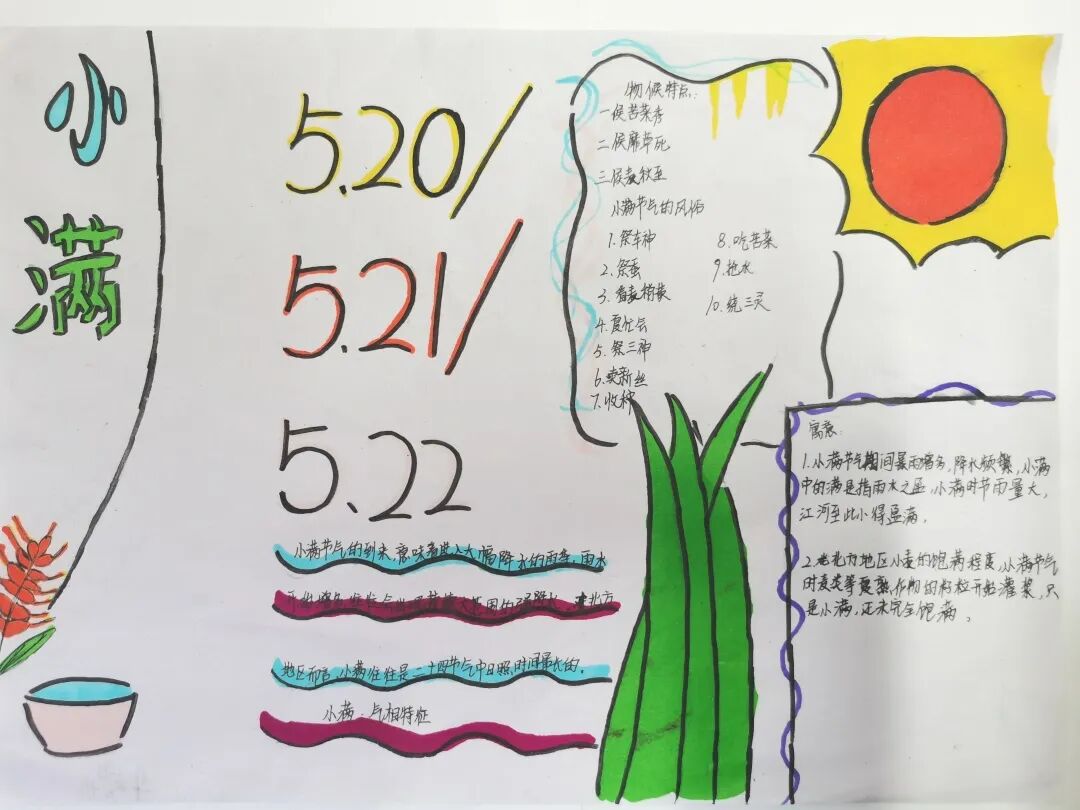 小
满
5.20/
5.21/
5.22
小满节气的到来,意味着进入大幅降水的雨季,雨水
地区而言,小满往往是二十四节气中日照时间最长的。
小满:气相特征
物候特点:
一候苦菜秀
二候靡草死
三候麦秋至
小满节气的风俗
1.祭车神
2.祭蚕
3.看麦梢黄
4.夏忙会
5.祭三神
6.卖新丝
7.收种
8.吃苦菜
9.抢水
10.绕三灵
寓意:
1.小满节气期间暴雨增多,降水频繁,小满
中的满是指雨水之盈,小满时节雨量大,
江河至此小得盈满。
2.北方地区小麦的饱满程度,小满节气
时麦类等夏熟作物的籽粒开始灌浆,只
是小满,还未完全饱满。